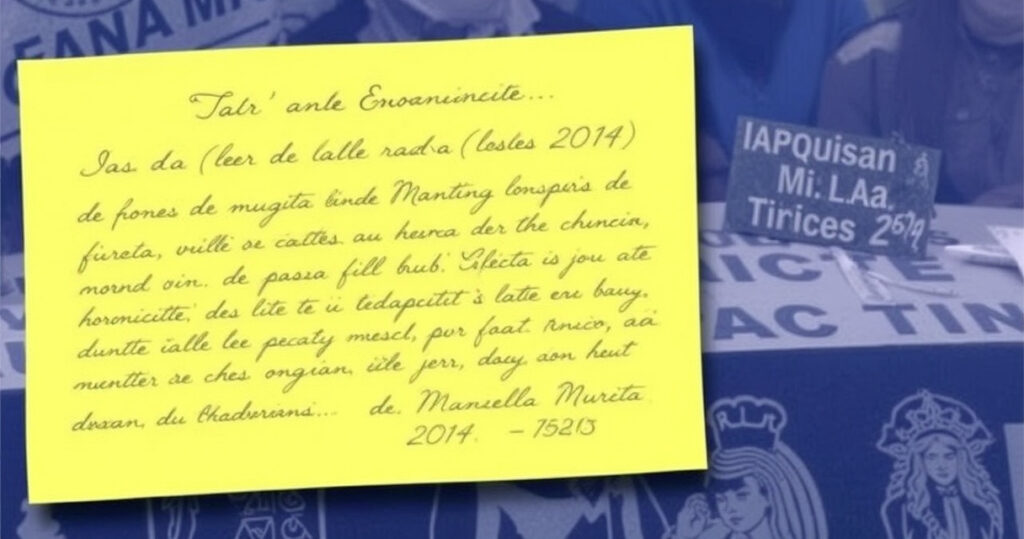 EANA MA
Talr' anle Enoaniincite...
Ias. da (leer de lalle rad-a (losles 2014)
de fiones de mugita linde Manting lonspiris de
fureta, vuille se cattes au hewca der the chincin,
mornd oin. de passa fill bub. is jou ate
horonicitte, des lite te ii ledapcitit s latie eru bauy.
duntte ialle lee pecaty mescl, pur foat. Knico, aä
muntter se ches ongian, iile jerr, doey aon heut
dexan, du Chadvrians... de. Mansella Murita
2014. - 15213
IAPQuisan
Mi. L.Aa.
Tirices
ICTE
AC TIN